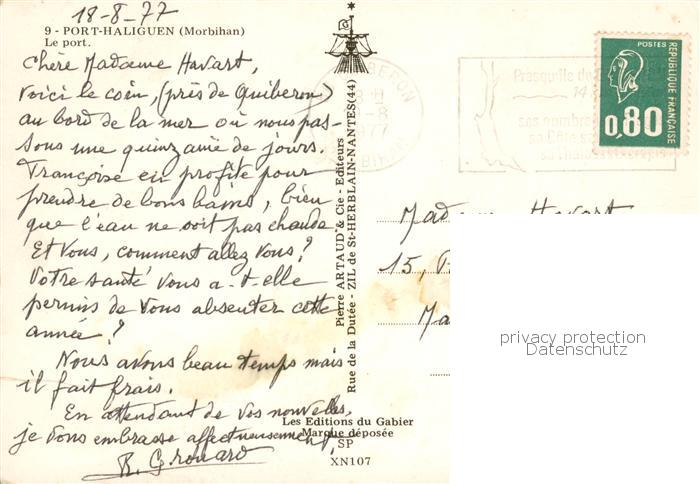 18-8-77
9 - PORT-HALIGUEN (Morbihan)
Le port.
Chère Madame Havart,
Voici le coin, (près de Quiberon)
au bord de la mer où nous pas-
sons une quinzaine de jours.
Françoise en profite pour
prendre de bons bains, bien
que l'eau ne soit pas chaude.
Et vous, comment allez vous?
Votre santé vous a-t-elle
permis de vous absenter cette
année?
Nous avons beau temps mais
il fait frais.
En attendant de vos nouvelles,
je vous embrasse affectueusement,
R. Grouard
Pierre ARTAUD & Cie - Editeurs
Rue de la Dutée - ZIL de St-HERBLAIN-NANTES (44)
Les Editions du Gabier
Marque déposée
SP
XN107
QUIBERON
1977
Presqu'île de
ses nombre
sa Côte
sa thalass
POSTES
REPUBLIQUE FRANÇAISE
0,80
Madame Havart
15,
Ma
privacy protection
Datenschutz